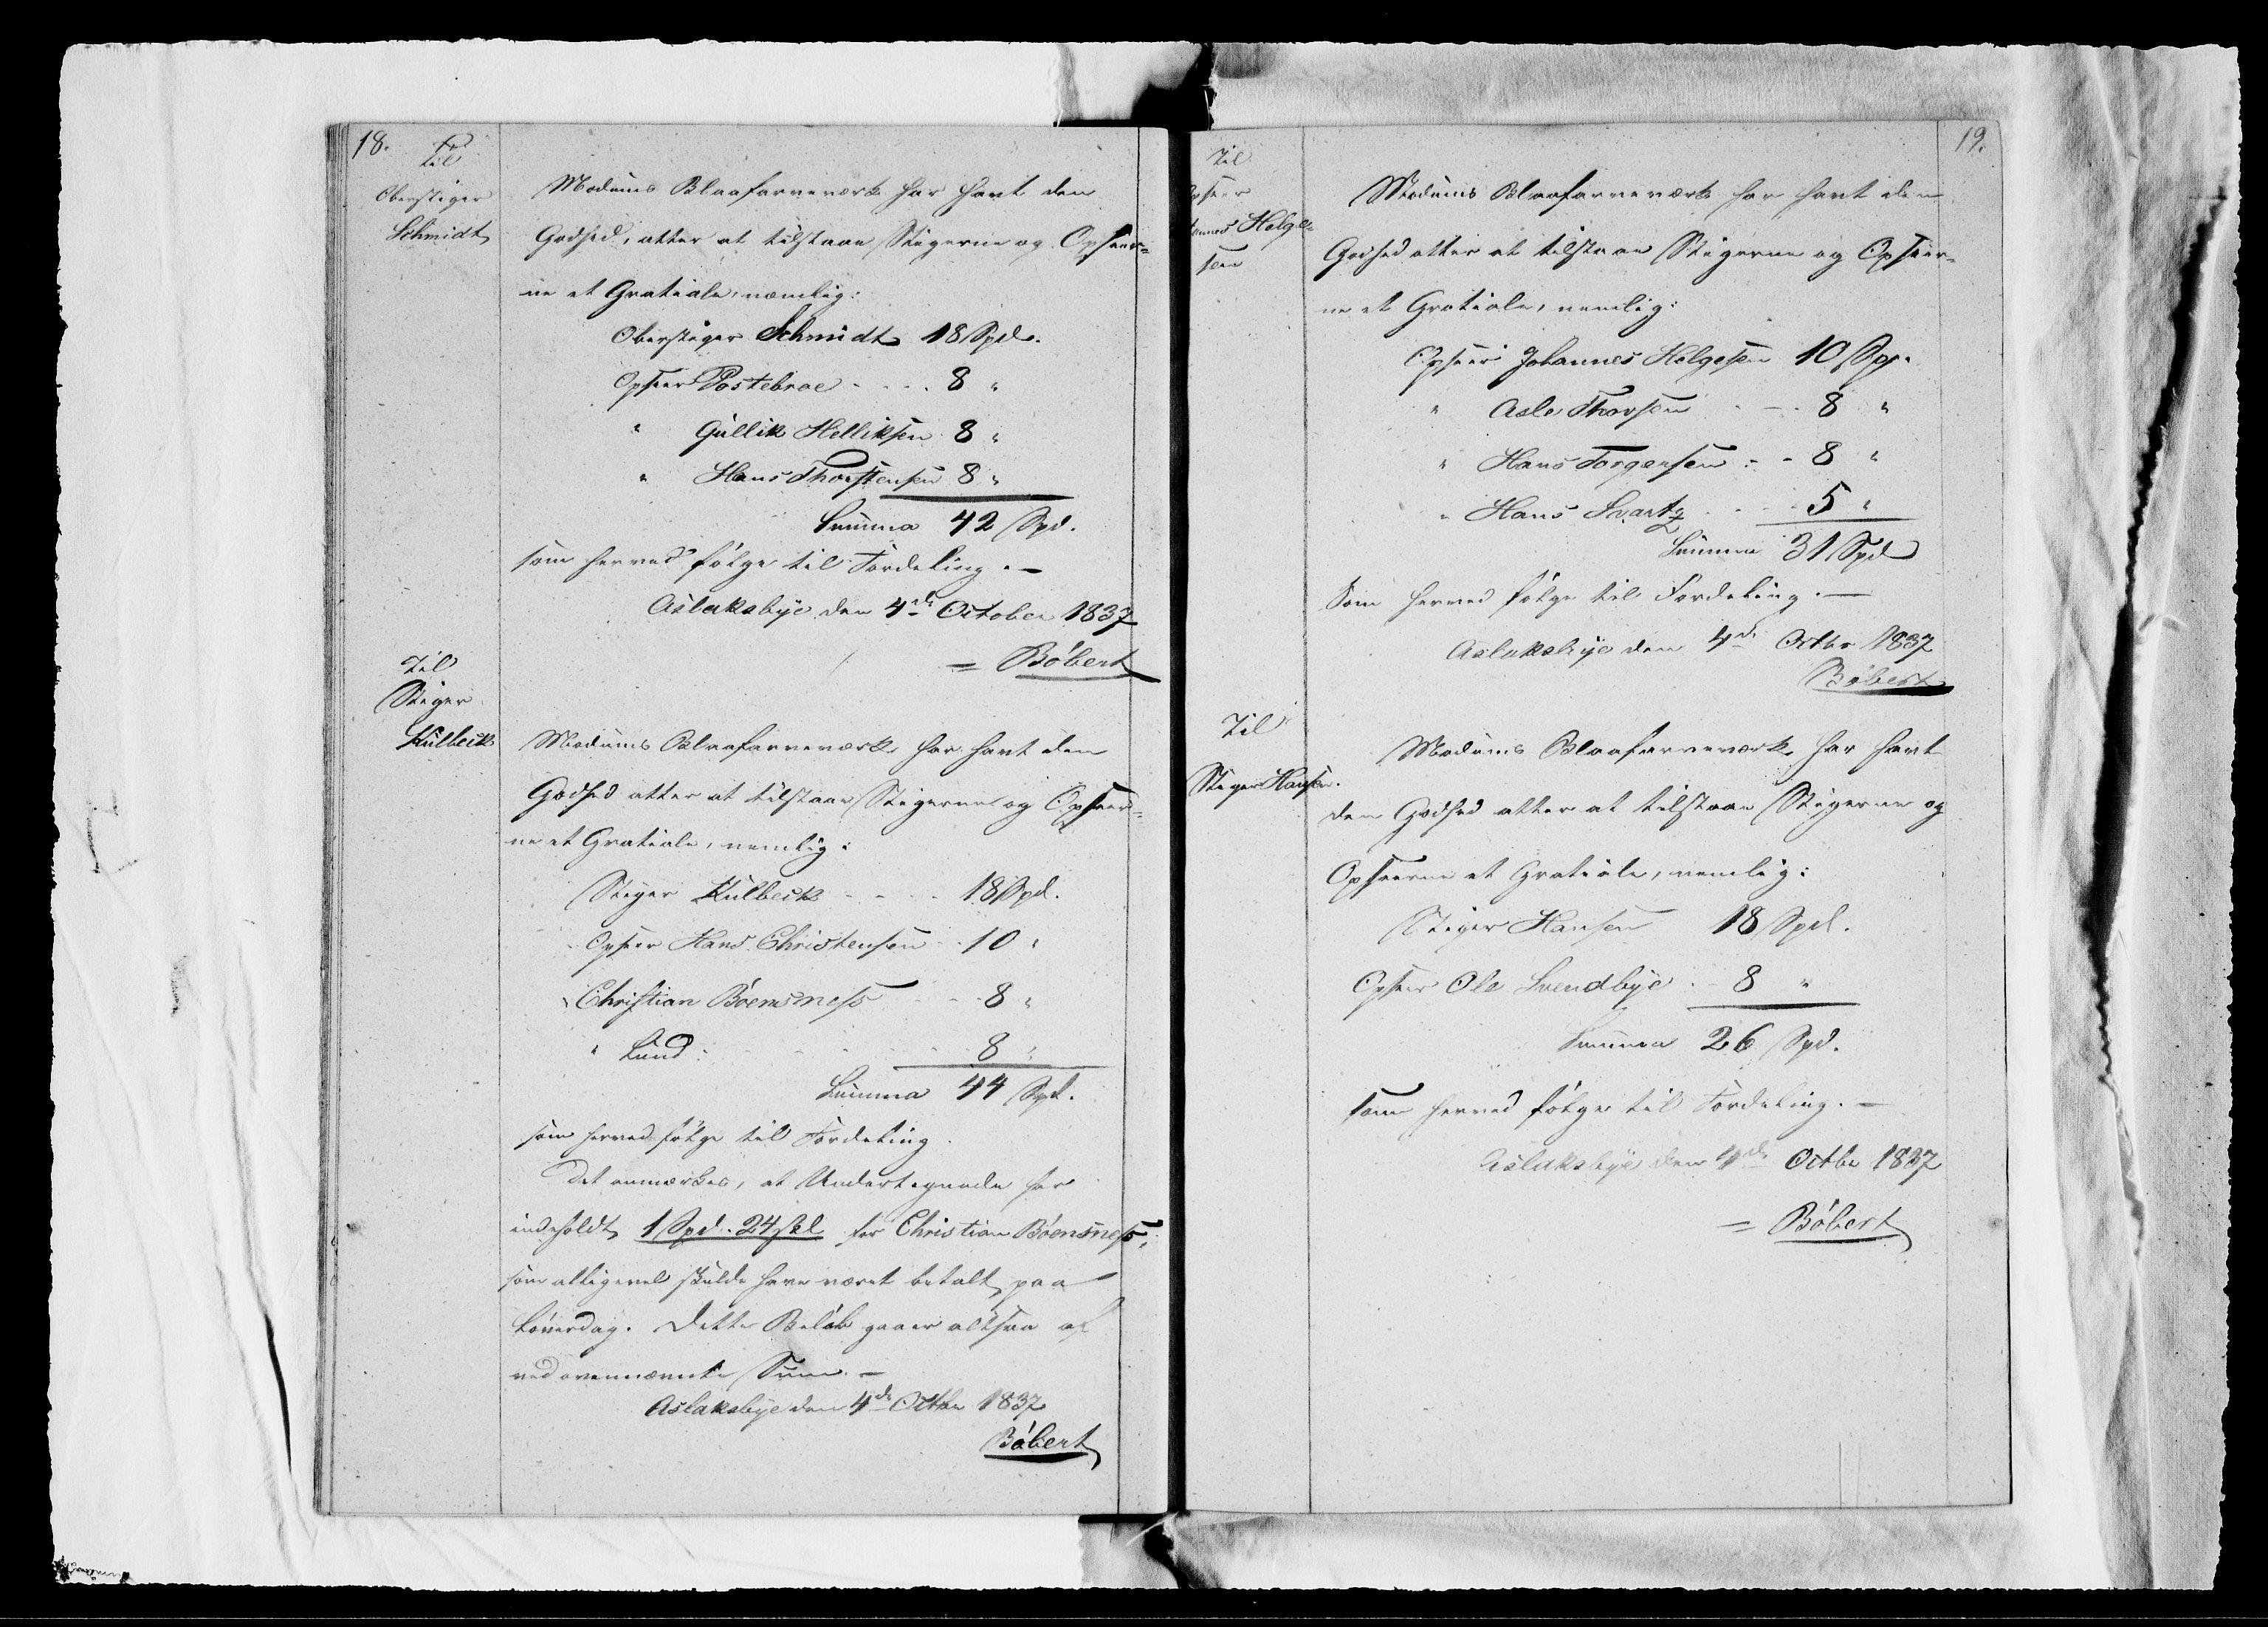 18.
Til
Oberstiger
Schmidt
Modums Blaafarveværk har havt den
Godhed, atter at tilstaae Stigerne og Opseer-
ne et Gratiale, nemlig:
Oberstiger Schmidt 18 Spd.
Opseer Postebroe - - - . 8 "
" Gullik Helliksen 8 "
" Hans Thorstensen 8 "
Summa 42 Spd.
som herved følge til Fordeling. –
Aslaksbye den 4de October 1837
= Böbert
Til
Stiger
Kulbeck
Modums Blaafarveværk har havt den
Godhed atter at tilstaae Stigerne og Opseer-
ne et Gratiale, nemlig:
Stiger Kulbeck - - - . 18 Spd.
Opseer Hans Christensen - 10 "
" Christian Böensness - - 8 "
" Lund: - - - - - 8 "
Summa 44 Spd.
som herved følge til Fordeling.
Det anmærkes, at Undertegnede har
indeholdt 1 Spd. 24 skl for Christian Böensness,
som alligevel skulde have været betalt paa
Löverdag. Dette Beløb gaaer altsaa af
ved ovennævnte Sum. –
Aslaksbye den 4de Octbr 1837
Böbert
19.
Til
Opseer
Johannes Helge-
sen
Modums Blaafarveværk har havt den
Godhed atter at tilstaae Stigerne og Opseer-
ne et Gratiale, nemlig:
Opseer Johannes Helgesen 10 Sp.
" Asle Thorsen - - . 8 "
" Hans Torgersen - - 8 "
" Hans Svartz - - - 5 "
Summa 31 Spd
Som herved følge til Fordeling. –
Aslaksbye den 4de Octbr 1837
Böbert
Til
Stiger Hansen.
Modums Blaafarveværk har havt
den Godhed atter at tilstaae Stigerne og
Opseerne et Gratiale, nemlig:
Stiger Hansen 18 Spd.
Opseer Ole Svendbye - 8 "
Summa 26 Spd.
som herved følge til Fordeling. –
Aslaksbye den 4de Octbr 1837
= Böbert